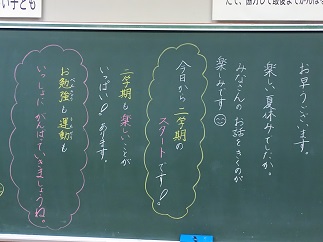 お早うございます。
楽しい夏休みでしたか。
みなさんのお話をきくのが
楽しみです
今日から二学期の
スタートです!
二学期も楽しいことが
いっぱい!あります。
お勉強も運動も
いっしょにがんばっていきましょうね。
い子ども